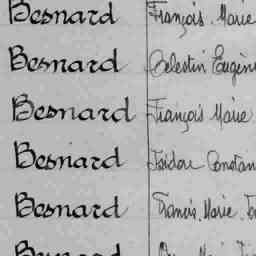 Besnard François Marie
Besnard Célestin Eugène
Besnard François Marie
Besnard Isidore Constan
Besnard Francis Marie
Besnard